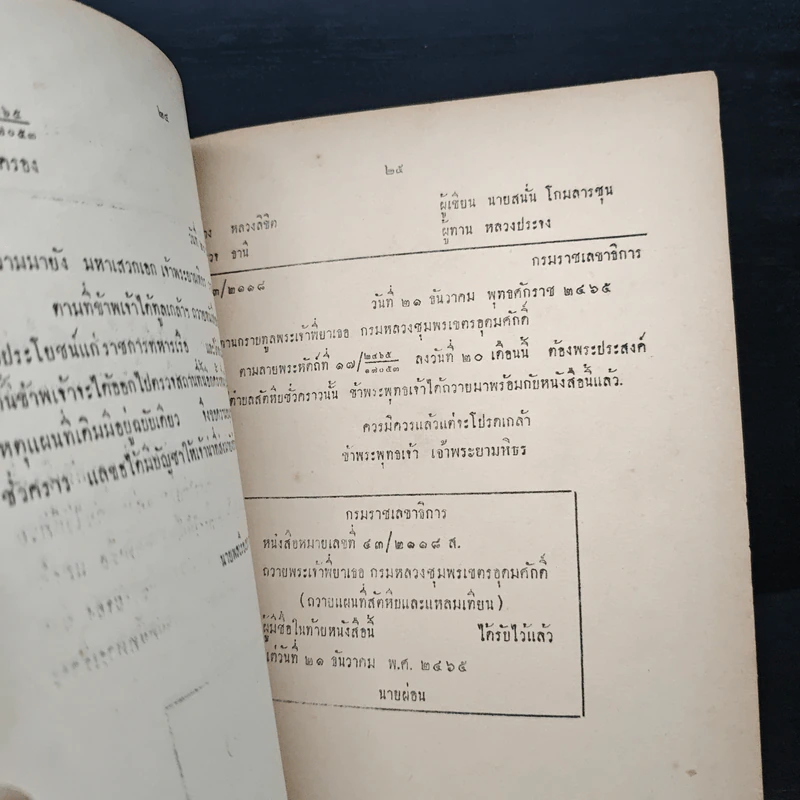 ๒๔
๒๔๖๕
๑๗๐๕๓
ครอง
วันที่
ความมายัง มหาเสวกเอก เจ้าพระยา
ตามที่ข้าพเจ้าได้ทูลเกล้าฯ ถวาย
ประโยชน์แก่ราชการทหารเรือ
นี้ข้าพเจ้าจะได้ออกไปตรวจสถานที่
เหตุแผนที่เดิมมีอยู่ฉบับเดียว จึง
ชั่วคราว แลขอได้มีบัญชาให้เจ้าน่าที่
๒๕
หลวงลิขิต
ธานี
ผู้เขียน นายสนั่น โกมลารชุน
ผู้ทาน หลวงประจง
กรมราชเลขาธิการ
๓/๒๑๑๘
วันที่ ๒๑ ธันวาคม พุทธศักราช ๒๔๖๕
กราบทูลพระเจ้าพี่ยาเธอ กรมหลวงชุมพรเขตรอุดมศักดิ์
ตามลายพระหัตถ์ที่ ๑๗/๒๔๖๕/๑๗๐๕๓ ลงวันที่ ๒๐ เดือนนี้ ต้องพระประสงค์
ตำบลสัตหีบชั่วคราวนั้น ข้าพระพุทธเจ้าได้ถวายมาพร้อมกับหนังสือนี้แล้ว.
ควรมิควรแล้วแต่จะโปรดเกล้า
ข้าพระพุทธเจ้า เจ้าพระยามหิธร
กรมราชเลขาธิการ
หนังสือหมายเลขที่ ๔๓/๒๑๑๘ ส.
ถวายพระเจ้าพี่ยาเธอ กรมหลวงชุมพรเขตรอุดมศักดิ์
(ถวายแผนที่สัตหีบและแหลมเทียน)
ผู้มีชื่อในท้ายหนังสือนี้ ได้รับไว้แล้ว
แต่วันที่ ๒๑ ธันวาคม พ.ศ. ๒๔๖๕
นายผ่อน